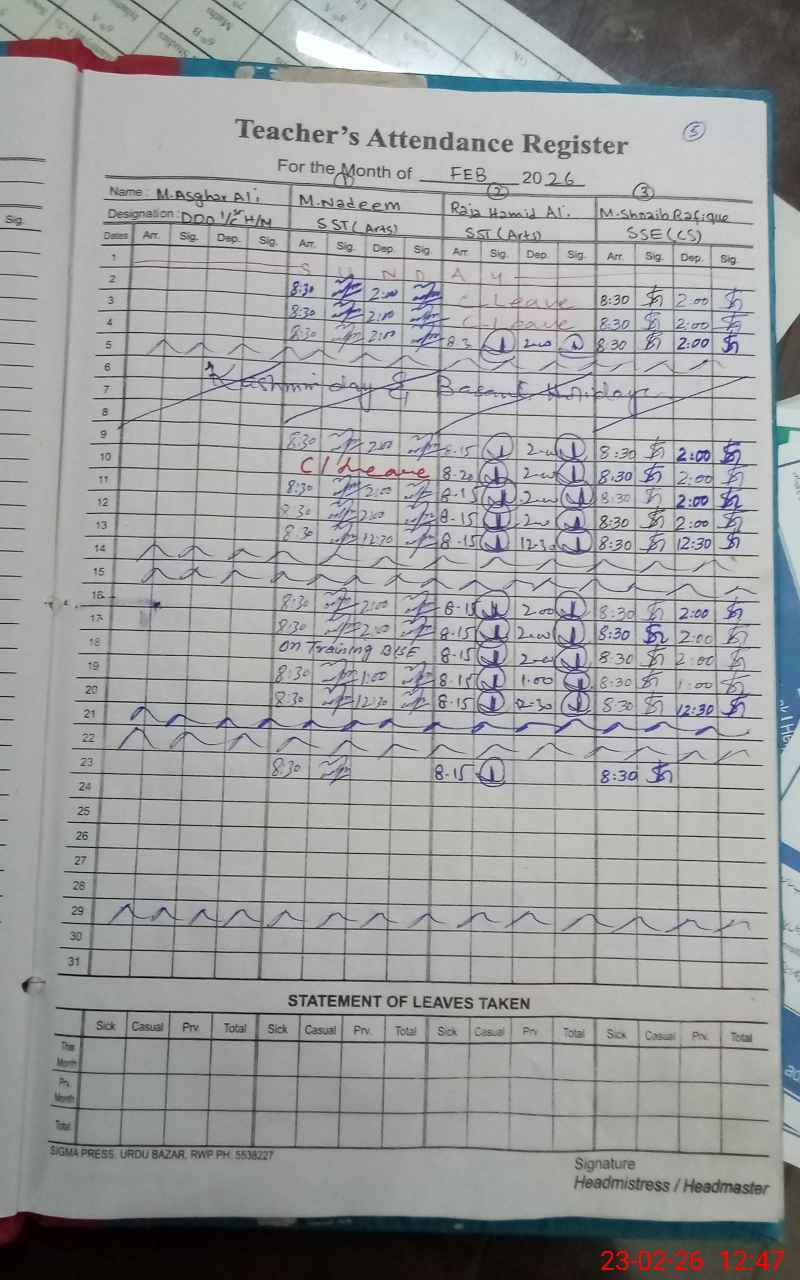 5
Teacher's Attendance Register
For the Month of FEB 2026
1 2 3
Name : M.Asghar Ali M.Nadeem Raja Hamid Ali M.Shoaib Rafique
Designation : DDO H/M SST (Arts) SST (Arts) SSE (CS)
Dates Arr. Sig. Dep. Sig. Arr. Sig. Dep. Sig. Arr. Sig. Dep. Sig. Arr. Sig. Dep. Sig.
1 S U N D A Y
2 8:30 2:00 C. Leave 8:30 2:00
3 8:30 2:00 C. Leave 8:30 2:00
4 8:30 2:00 8.3 2:00 8:30 2:00
5
6 Kashmir day & Basant Holidays
7
8
9 8:30 2:00 8.15 2:00 8:30 2:00
10 C/Leave 8.20 2:00 8:30 2:00
11 8:30 2:00 8.15 2:00 8:30 2:00
12 8:30 2:00 8.15 2:00 8:30 2:00
13 8:30 12:30 8.15 12:30 8:30 12:30
14
15
16 8:30 2:00 8.15 2:00 8:30 2:00
17 8:30 2:00 8.15 2:00 8:30 2:00
18 On Training BISE 8.15 2:00 8:30 2:00
19 8:30 1:00 8.15 1:00 8:30 1:00
20 8:30 12:30 8.15 12:30 8:30 12:30
21
22
23 8:30 8.15 8:30
24
25
26
27
28
29
30
31
STATEMENT OF LEAVES TAKEN
Sick Casual Prv. Total Sick Casual Prv. Total Sick Casual Prv. Total Sick Casual Prv. Total
This Month
Prv. Month
Total
SIGMA PRESS, URDU BAZAR, RWP PH: 5538227
Signature
Headmistress / Headmaster
23-02-26 12:47